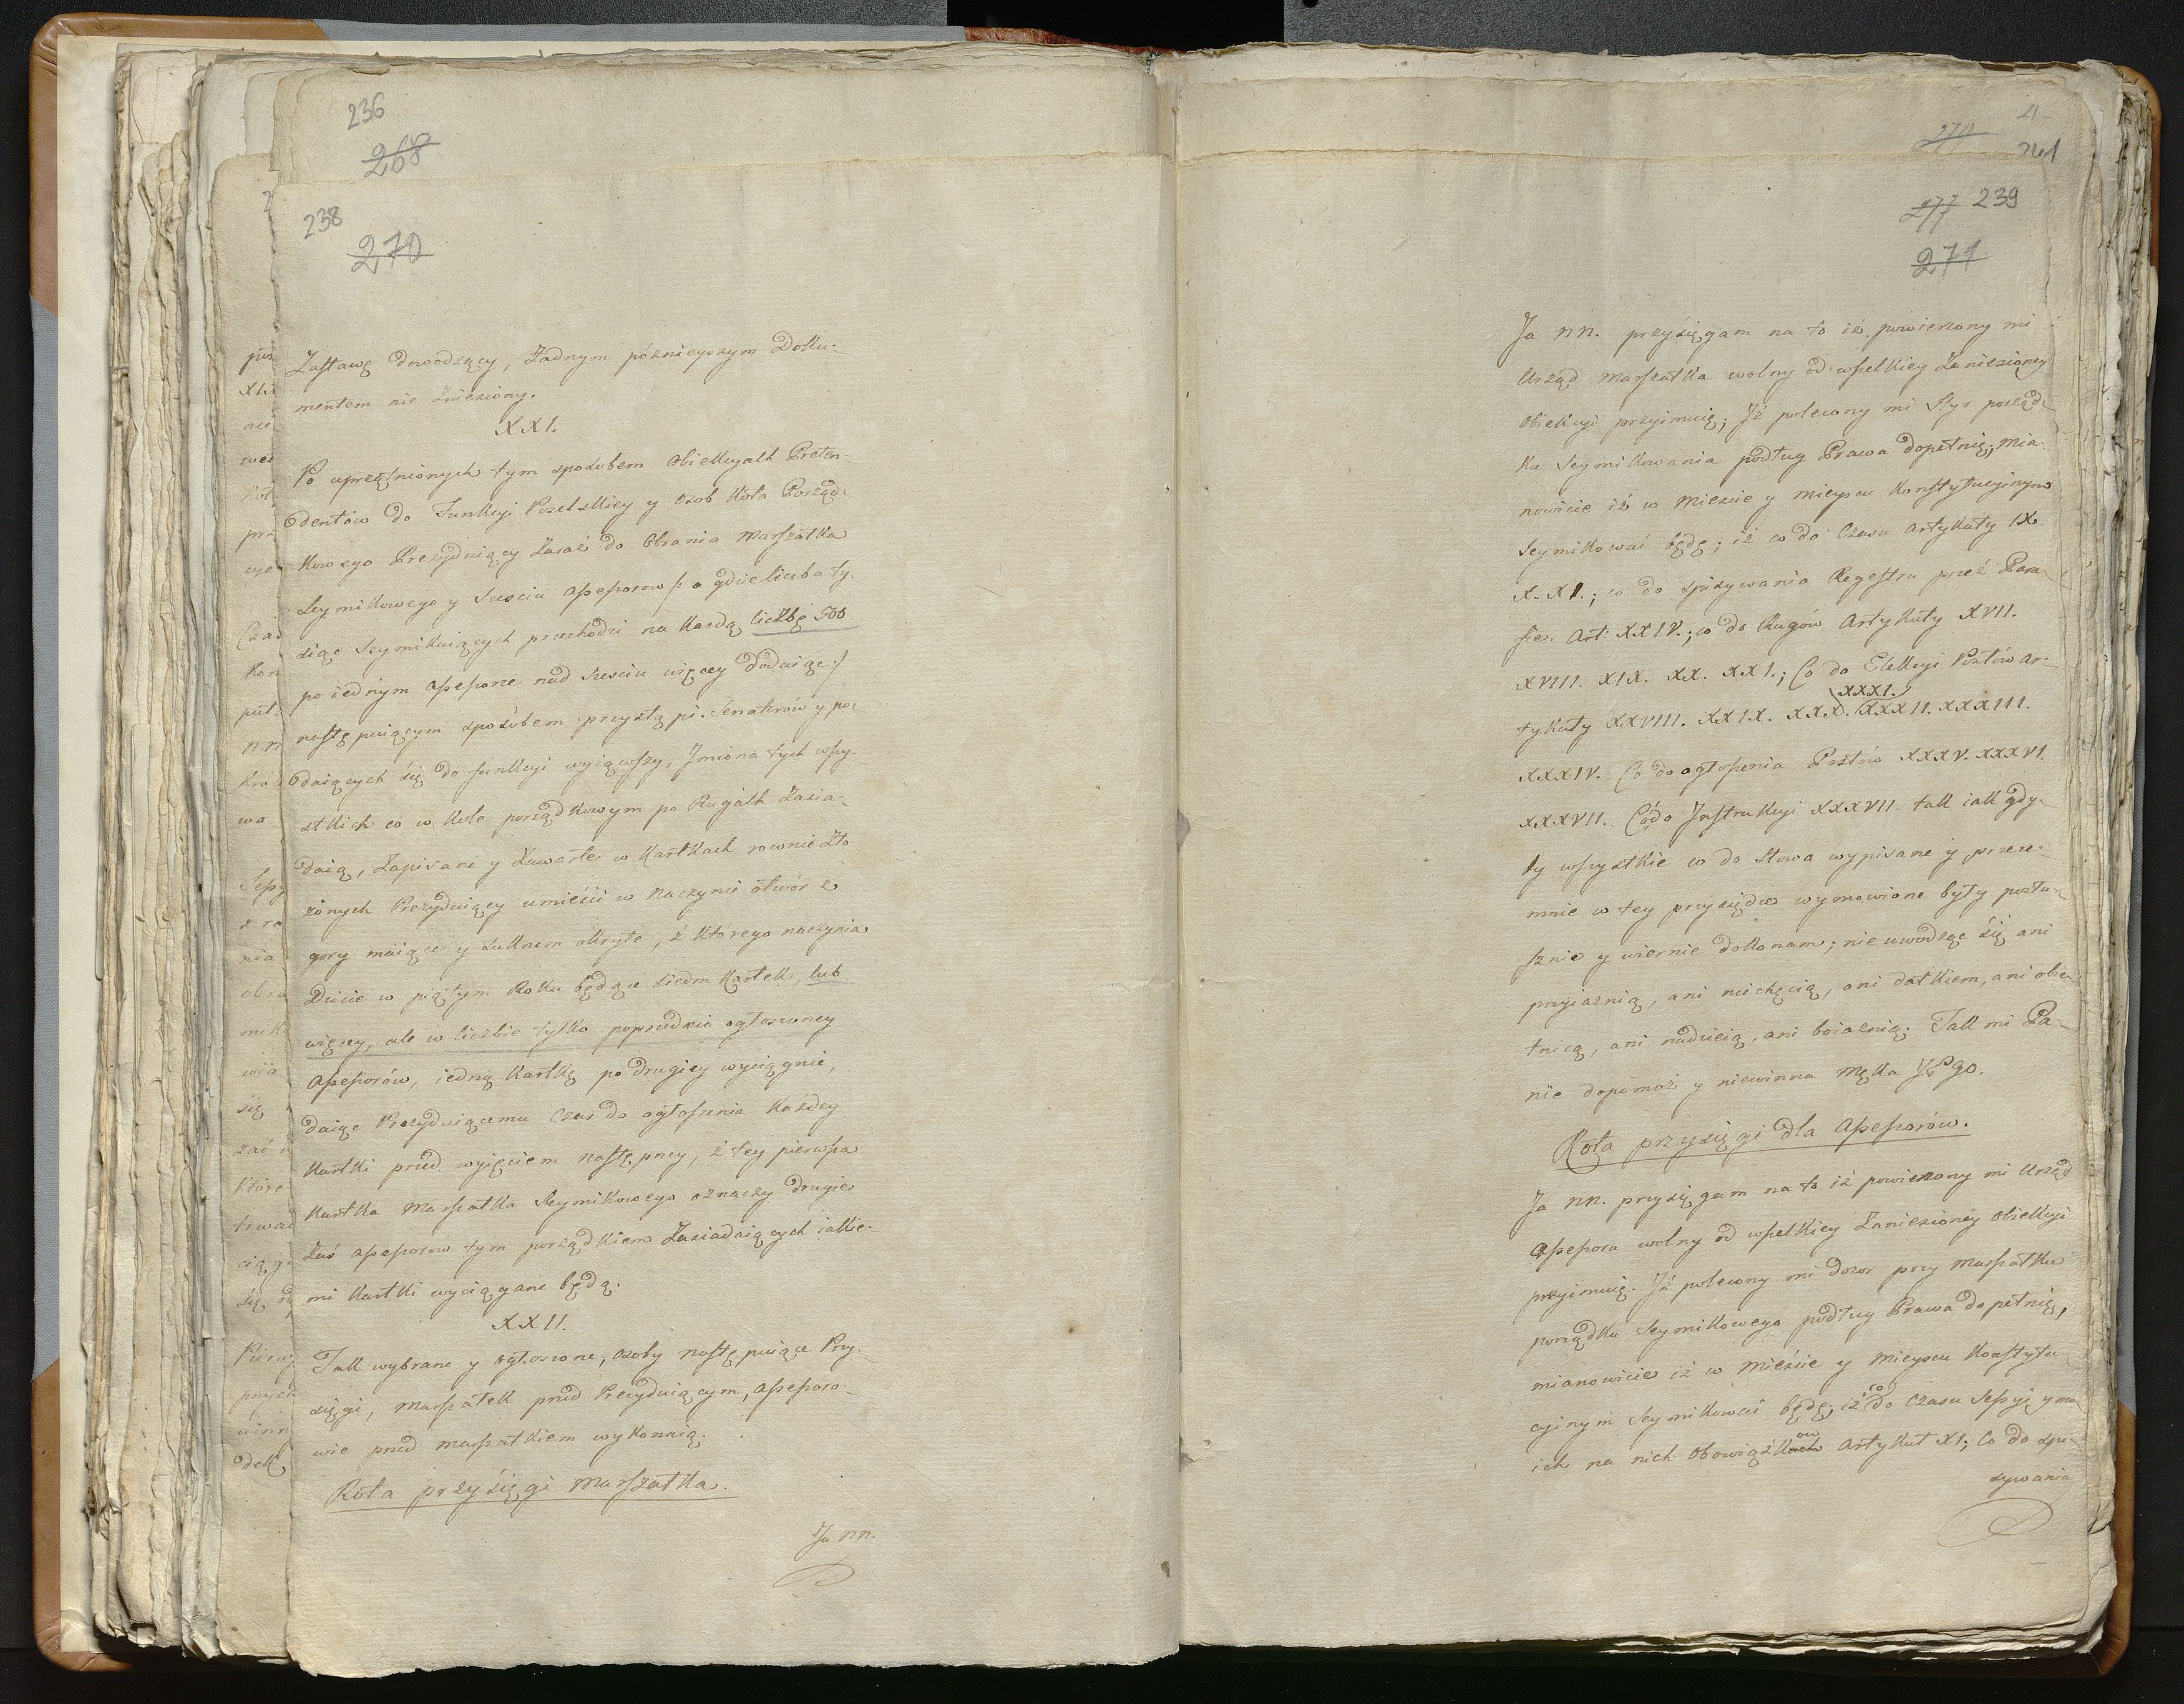 236
268
238
270
Zastawę dowodzący, żadnym poźnieyszym Doku-
mentem nie zniesiony.
XXI.
Po uprzątnionych tym sposobem Obiekcyach Preten-
dentów do Funkcyi Poselskiey y Osob Koła Porząd-
kowego Prezyduiący zaraz do Obrania Marszałka
Seymikowego y sześciu Assessorow /: a gdzie liczba ty-
siąc Seymikuiących przechodzi na każdą liczbę 500
po iednym Assessorze nad sześciu więcey dodaiąc :/
następuiącym sposobem przystąpi. Senatorów y po-
daiących się do funkcyi wyiąwszy, Jmiona tych wszy-
stkich co w Kole porządkowym po Rugach zasia-
daią, zapisane y zawarte w kartkach rownie zło-
żonych Prezyduiący umieści w naczynie otwór z
gory maiące y suknem okryte, z którego naczynia
Dziecie w piątym Roku będące siedm kartek, lub
więcey, ale w liczbie tylko poprzednio ogłoszoney
Assessorów, iedną kartkę po drugiey wyciągnie,
daiąc Prezyduiącemu czas do ogłoszenia każdey
kartki przed wyięciem następney, z tey pierwsza
kartka Marszałka Seymikowego oznaczy drugie
zaś Assessorów tym porządkiem zasiadaiących iakie-
mi kartki wyciągane będą.
XXII.
Tak wybrane y ogłoszone, osoby następuiące Przy-
sięgi, Marszałek przed Prezyduiącym, Assessoro-
wie przed Marszałkiem wykonaią.
Rota przysięgi Marszałka.
Ja nn.
4
270
241
277 239
271
Ja nn. przysięgam na to iż powierzony mi
Urząd Marszałka wolny od wszelkiey zaniesioney
Obiekcyi przyimuię; Jż polecony mi Styr porząd-
ku Seymikowania podług Prawa dopełnię, mia-
nowicie iż w Mieście y mieyscu Konstytucyinym
Seymikować będę; iż co do Czasu Artykuły IX.
X. XI.; co do spisywania Regestru przez Para-
fie. Art: XXIV.; co do Rugów Artykuły XVII.
XVIII. XIX. XX. XXI.; Co do Elekcyi Posłów Ar-
tykuły XXVIII. XXIX. XXX. XXXI. XXXII. XXXIII.
XXXIV. Co do ogłoszenia Posłów XXXV. XXXVI.
XXXVII. Co do Jnstrukcyi XXXVII. tak iak gdy-
by wszystkie co do słowa wypisane y przeze-
mnie w tey przysiędze wymowione były posłu-
sznie y wiernie dokonam; nie uwodząc się ani
przyiaznią, ani niechęcią, ani datkiem, ani obie-
tnicą, ani nadzieią, ani boiaznią. Tak mi Pa-
nie dopomoż y niewinna Męka Jego.
Rota przysięgi dla Assessorów.
Ja nn. przysięgam na to iż powierzony mi Urząd
Assessora wolny od wszelkiey zaniesioney Obiekcyi
przyimuię. Jż polecony mi dozor przy Marszałku
porządku Seymikowego podług Prawa dopełnię,
mianowicie iż w Mieście y Mieyscu Konstytu-
cyinym Seymikować będę; iż co do Czasu Sessyi y mo-
ich na nich obowiązkow Artykuł XI; Co do spi-
sywania